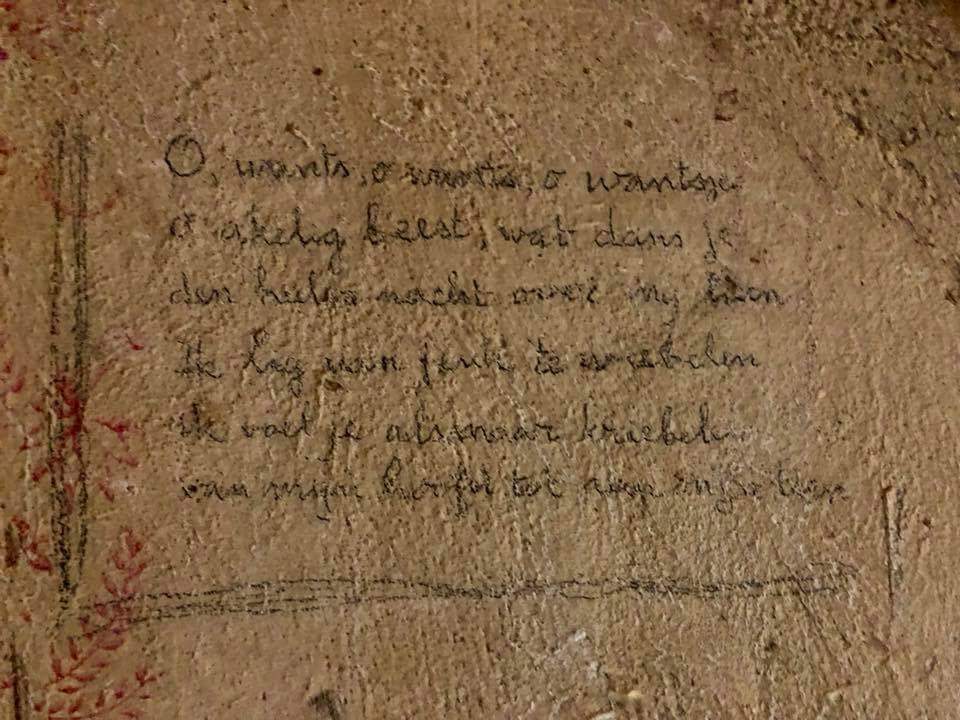 O, wants, o wants, o wantsje
o akelig beest, wat dans je
den heelen nacht over my heen
Ik lag van jeuk te wriebelen
ik voel je alsmaar kriebelen
van mijn hoofd tot aan mijn teen